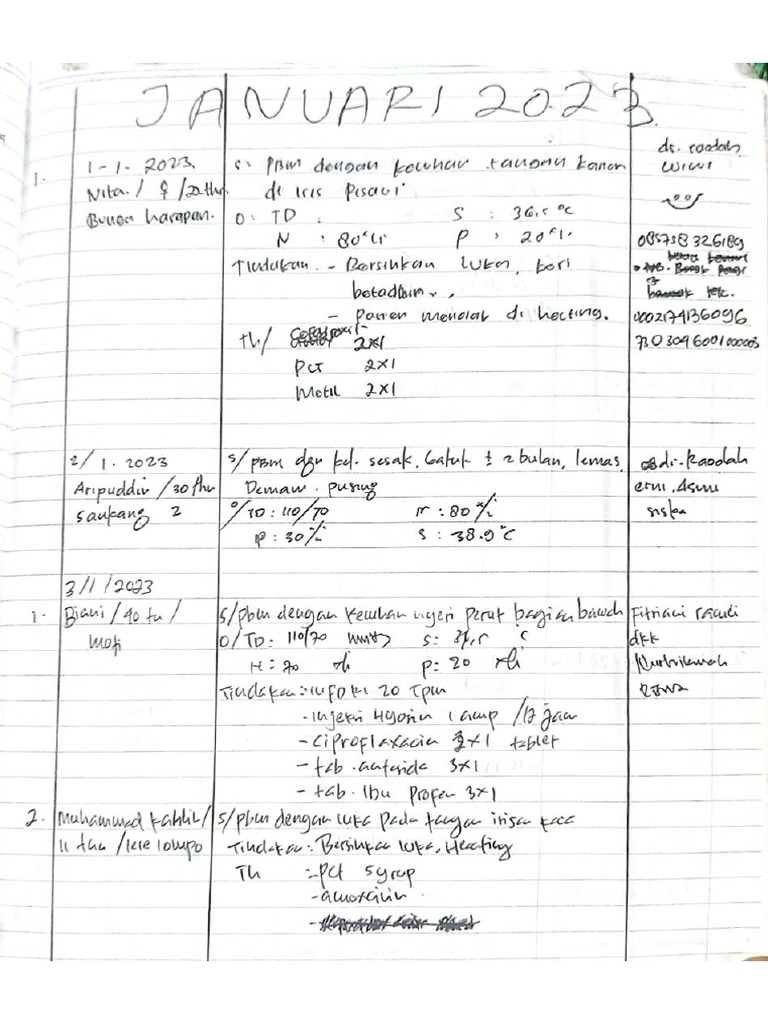 JANUARI 2023
1.
1-1. 2023.
Nita / ♀ / 20 thn
Bunga harapan.
S: PBM dengan keluhan tangan kanan
di iris pisau
O: TD : S : 36.5 °C
N : 80 x/i P : 20 x/i.
Tindakan. - Bersihkan luka, beri
betadhin.
- Pasien menolak di hecting.
Th/ 2x1
PCT 2x1
Metil 2x1
dr. raodah
wiwi
085758326189
0002174136096
7303096001000003
2/1. 2023
Aripuddin /30 thn
Saukang 2
S/ PBM dgn kel. sesak, batuk ± 2 bulan, lemas,
Demam. pusing
O/TD : 110/70 N : 80 x/i
P : 30 x/i S : 38.9 °C
dr. Raodah
erni, Asmi
siska
3/1/2023
1. Biani / 40 tn /
S/pbm dengan keluhan nyeri perut bagian bawah
O/TD: 110/70 mmHg S: C
N: 70 x/i P: 20 x/i
Tindakan: IUFD RL 20 Tpm
- injeksi 1 amp /12 jam
- Ciproflaxacin 2x1 tablet
- tab. antasida 3x1
- tab. Ibu Profen 3x1
Fitriani
dkk
2. Muhammad kahlil/
11 thn /lere lompo
S/pbm dengan luka pada tangan irisan kaca
Tindakan: Bersihkan luka, Heacting
Th :- pct syrup
- amoxcilin